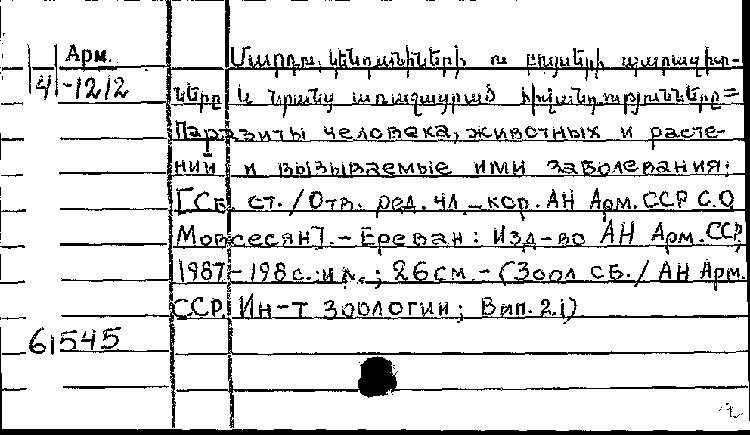 Арм.
4-1212
Մարդու, կենդանիների ու բույսերի պարազիտ-
ները և նրանց առաջացրած հիվանդությունները =
Паразиты человека, животных и расте-
ний и вызываемые ими заболевания:
[Сб. ст. / Отв. ред. чл.-кор. АН Арм. ССР С.О.
Мовсесян]. - Ереван: Изд-во АН Арм. ССР,
1987 - 198 с.: ил.; 26 см. - (Зоол сб. / АН Арм.
ССР. Ин-т зоологии; Вып. 21)
61545